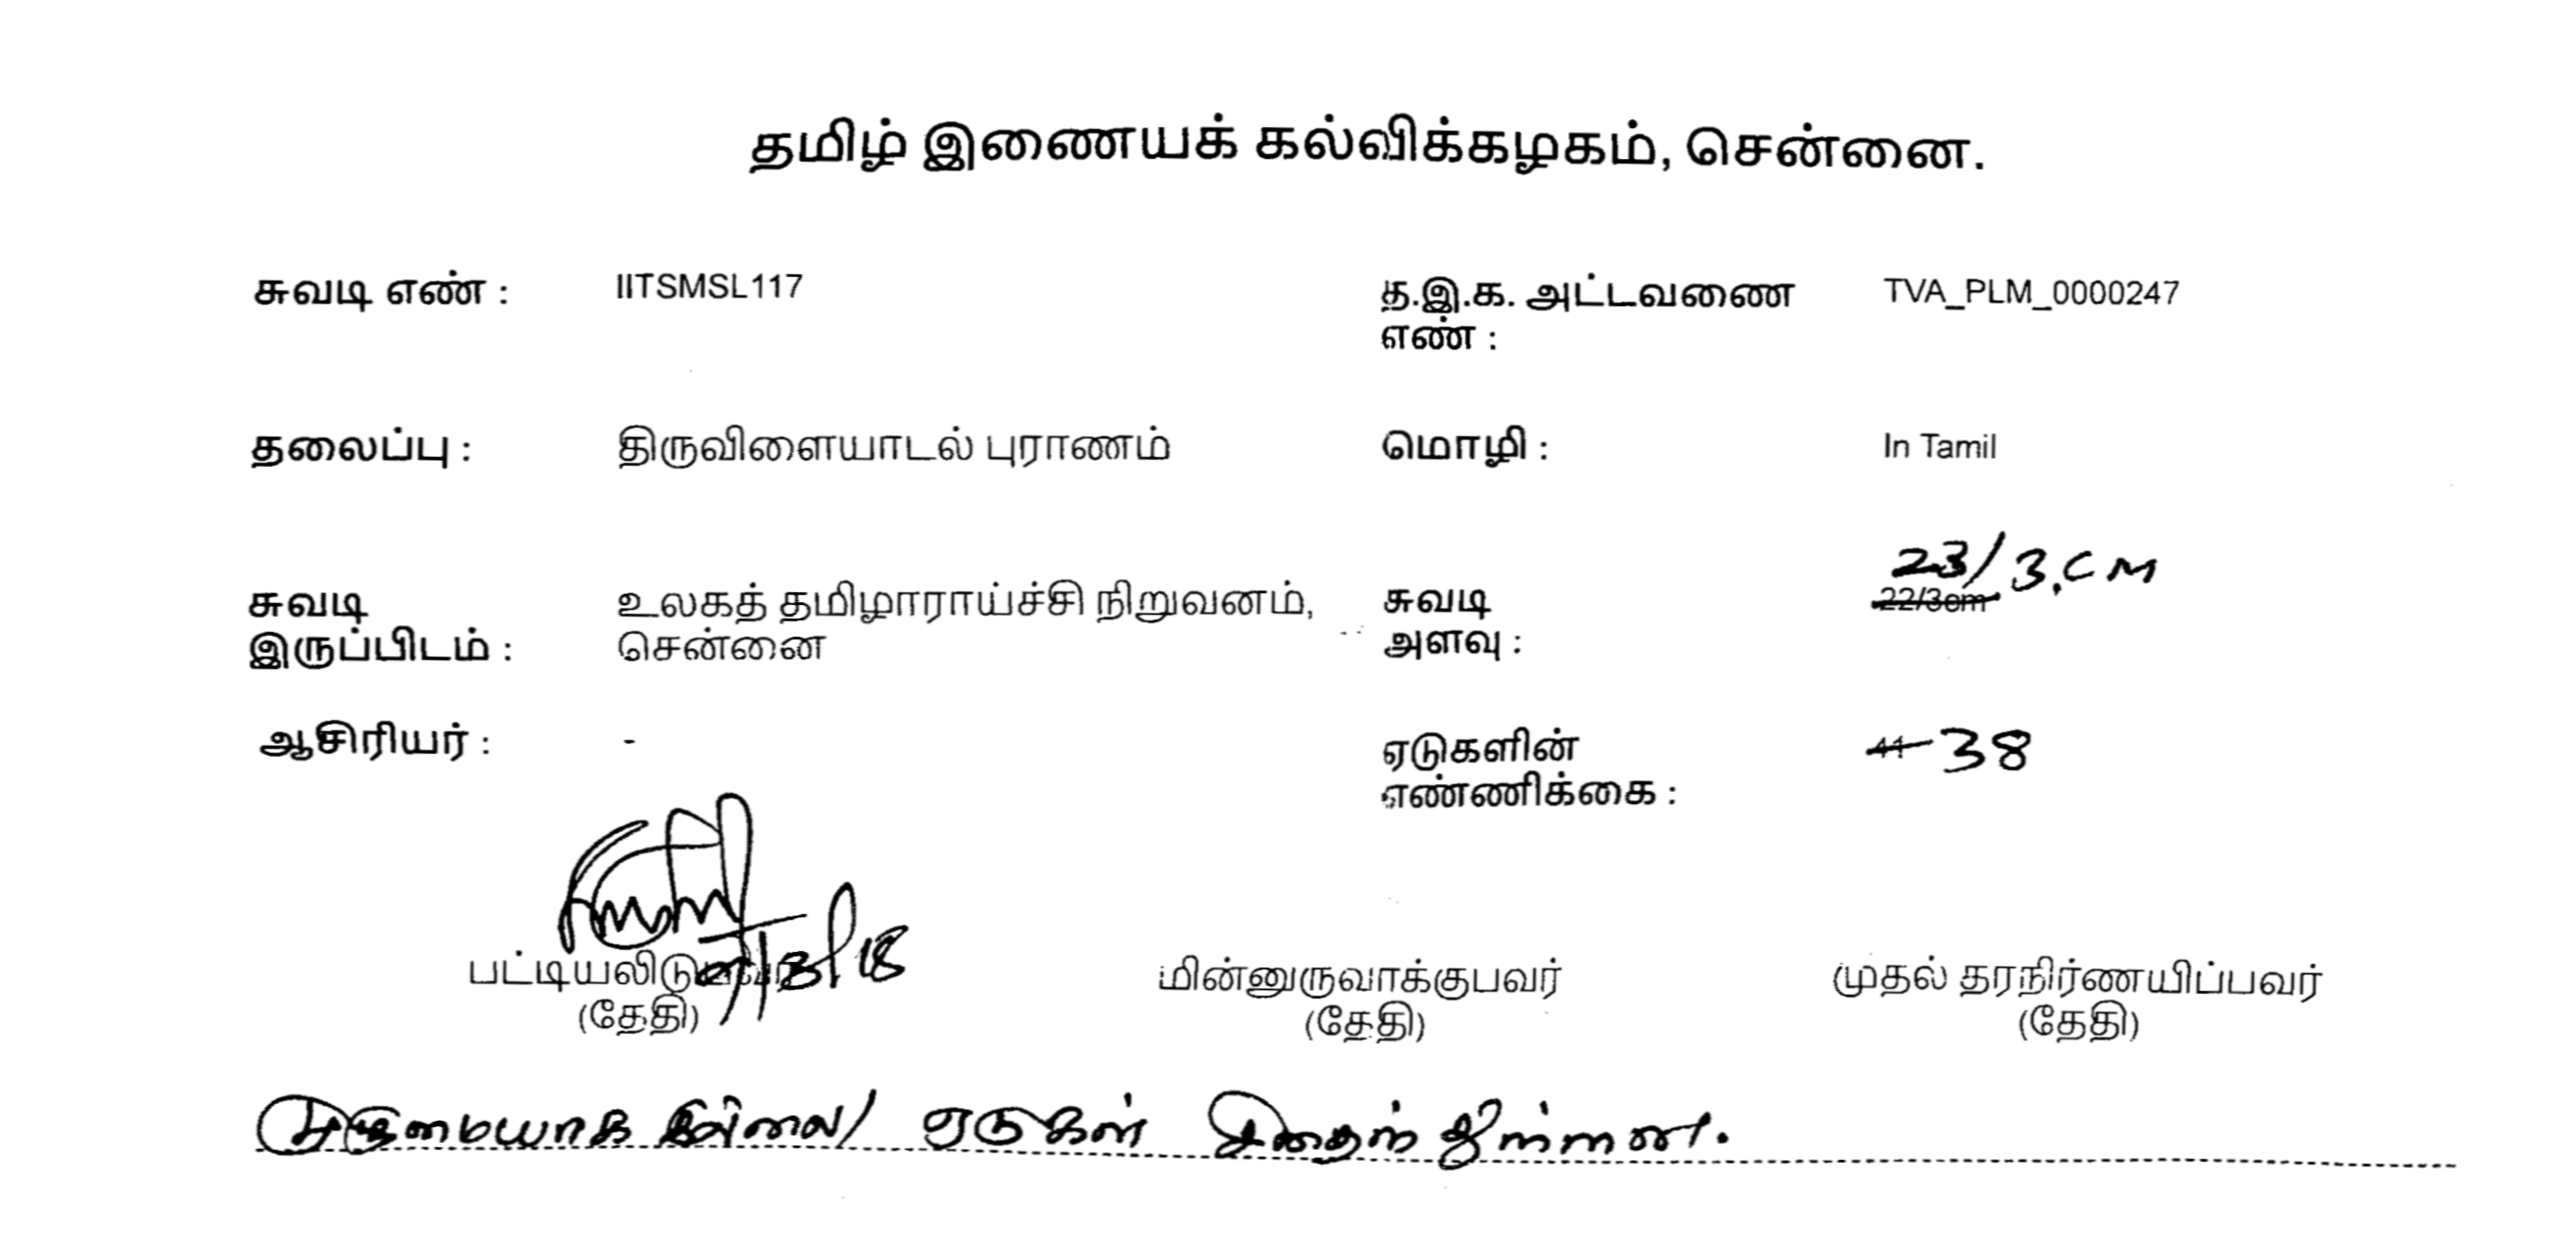 தமிழ் இணையக் கல்விக்கழகம், சென்னை.
சுவடி எண் : IITSMSL117 த.இ.க. அட்டவணை எண் : TVA_PLM_0000247
தலைப்பு : திருவிளையாடல் புராணம் மொழி : In Tamil
23/3.CM
சுவடி உலகத் தமிழாராய்ச்சி நிறுவனம், சுவடி 22/3cm
இருப்பிடம் : சென்னை அளவு :
ஆசிரியர் : - ஏடுகளின் 41 38
எண்ணிக்கை :
9/3/18
பட்டியலிடுபவர் மின்னுருவாக்குபவர் முதல் தரநிர்ணயிப்பவர்
(தேதி) (தேதி) (தேதி)
முழுமையாக இல்லை/ ஏடுகள் சிதைந்துள்ளன.